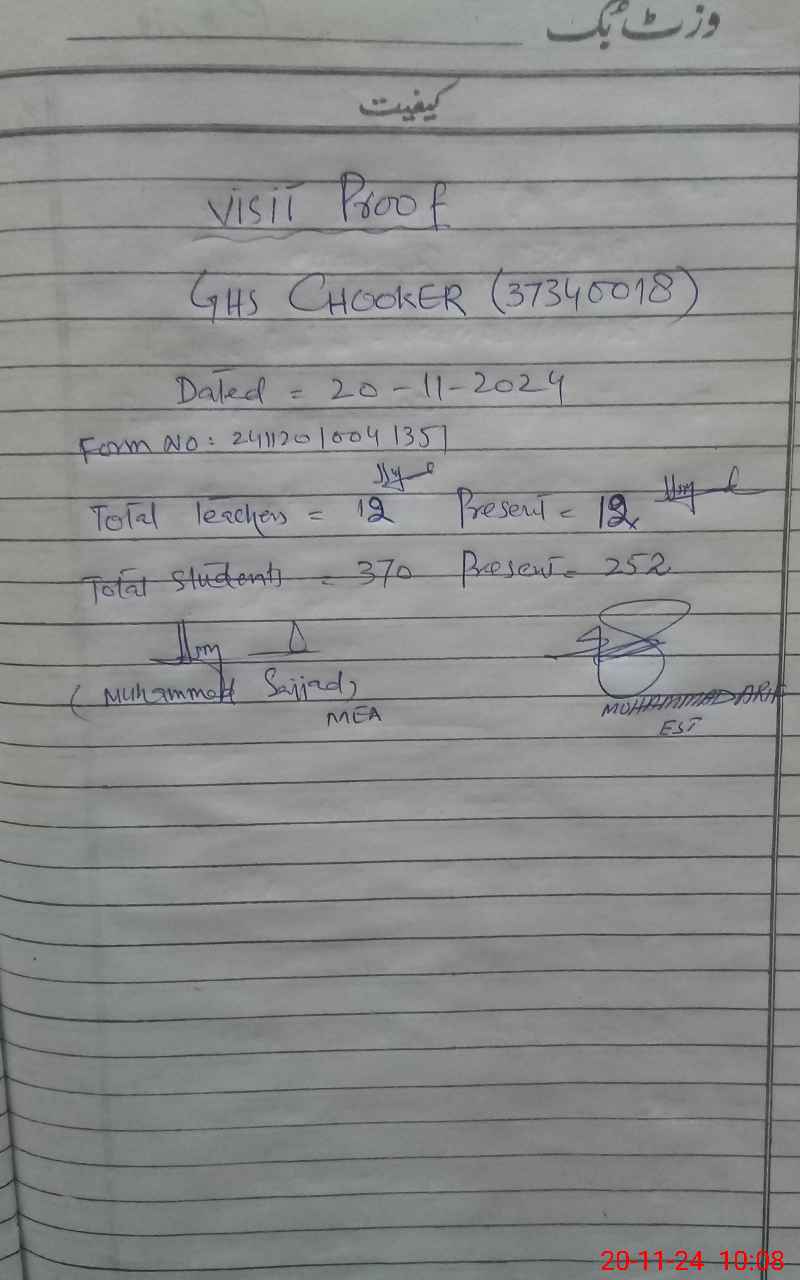 وزٹ بُک
کیفیت
Visit Proof
GHS CHOOKER (37340018)
Dated = 20-11-2024
Form No: 24112010041351
Total Teachers = 12 Present = 12
Total Students = 370 Present = 252
(Muhammad Sajjad)
MEA
MUHAMMAD ARIF
EST
20-11-24 10:08